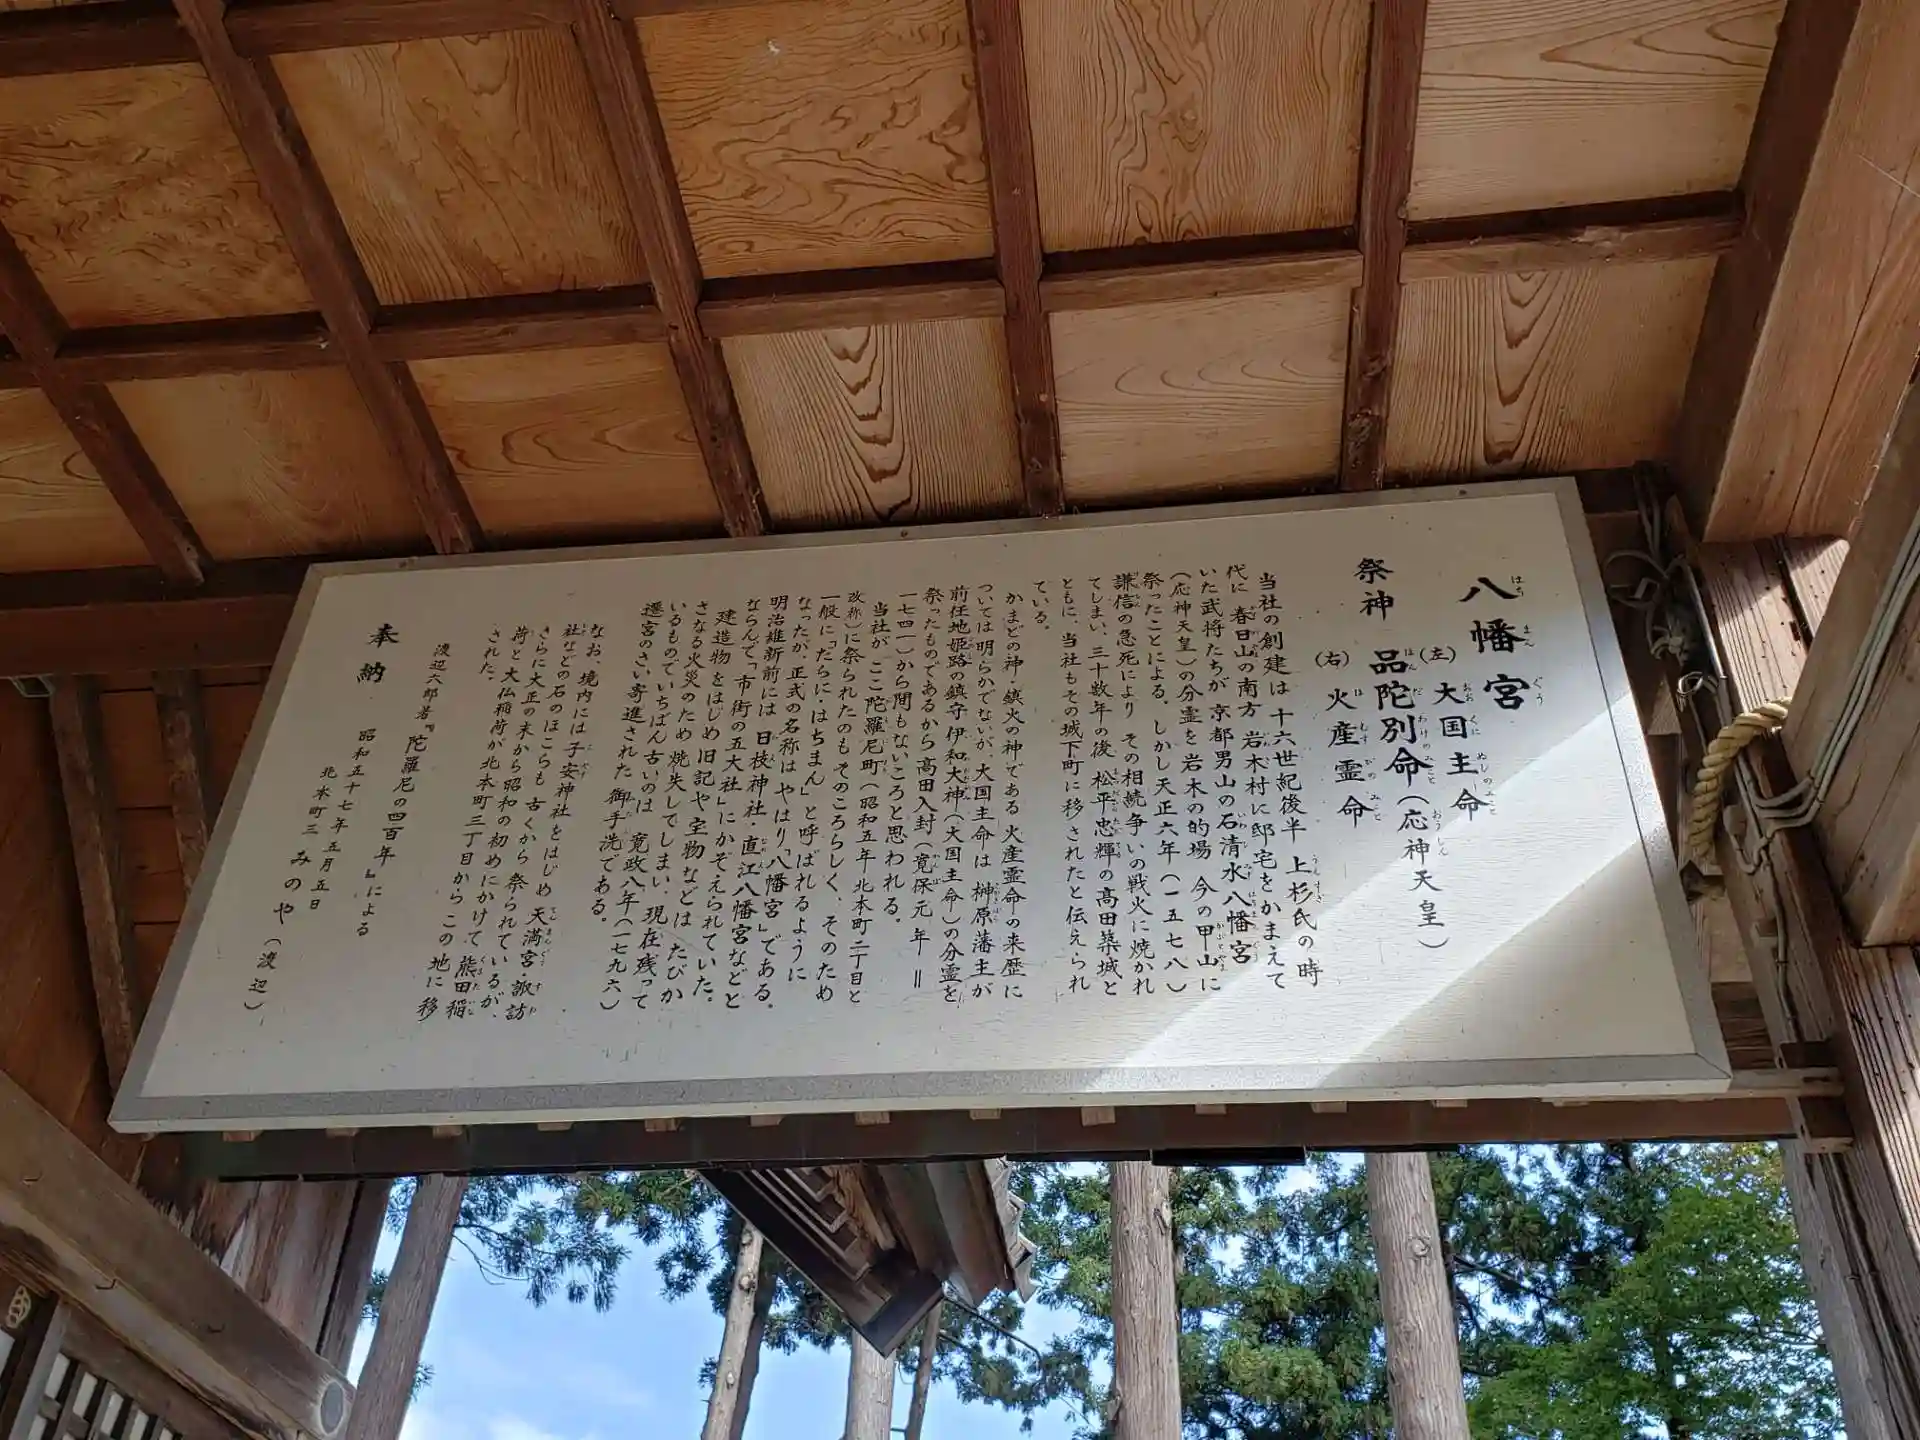 八幡宮
はちまんぐう
祭神
(左) 大国主命
おおくにぬしのみこと
品陀別命(応神天皇)
ほんだわけのみこと おうじん
(右) 火産霊命
ほむすびのみこと
当社の創建は 十六世紀後半 上杉氏の時
代に 春日山の南方 岩木村に邸宅をかまえて
いた武将たちが 京都男山の石清水八幡宮
(応神天皇)の分霊を岩木の的場 今の甲山に
祭ったことによる。しかし天正六年(一五七八)
謙信の急死により その相続争いの戦火に焼かれ
てしまい、三十数年の後 松平忠輝の高田築城と
ともに、当社もその城下町に移されたと伝えられ
ている。
かまどの神・鎮火の神である 火産霊命の来歴に
ついては明らかでないが、大国主命は 榊原藩主が
前任地姫路の鎮守 伊和大神(大国主命)の分霊を
祭ったものであるから高田入封(寛保元年=
一七四一)から間もないころと思われる。
当社が ここ陀羅尼町(昭和五年北本町二丁目と
改称)に祭られたのもそのころらしく、そのため
一般に「だらに・はちまん」と呼ばれるように
なったが、正式の名称はやはり「八幡宮」である。
明治維新前には 日枝神社・直江八幡宮などと
ならんで「市街の五大社」にかぞえられていた。
建造物をはじめ旧記や宝物などは たびか
さなる火災のため焼失してしまい、現在残って
いるもので いちばん古いのは 寛政八年(一七九六)
遷宮のさい寄進された 御手洗である。
なお、境内には 子安神社をはじめ 天満宮・諏訪
社などの石のほこらも 古くから祭られているが、
さらに大正の末から昭和の初めにかけて 熊田稲
荷と大仏稲荷が北本町三丁目から この地に移
された。
渡辺六郎著『陀羅尼の四百年』による
奉納
昭和五十七年五月五日
北本町三 みのや(渡辺)